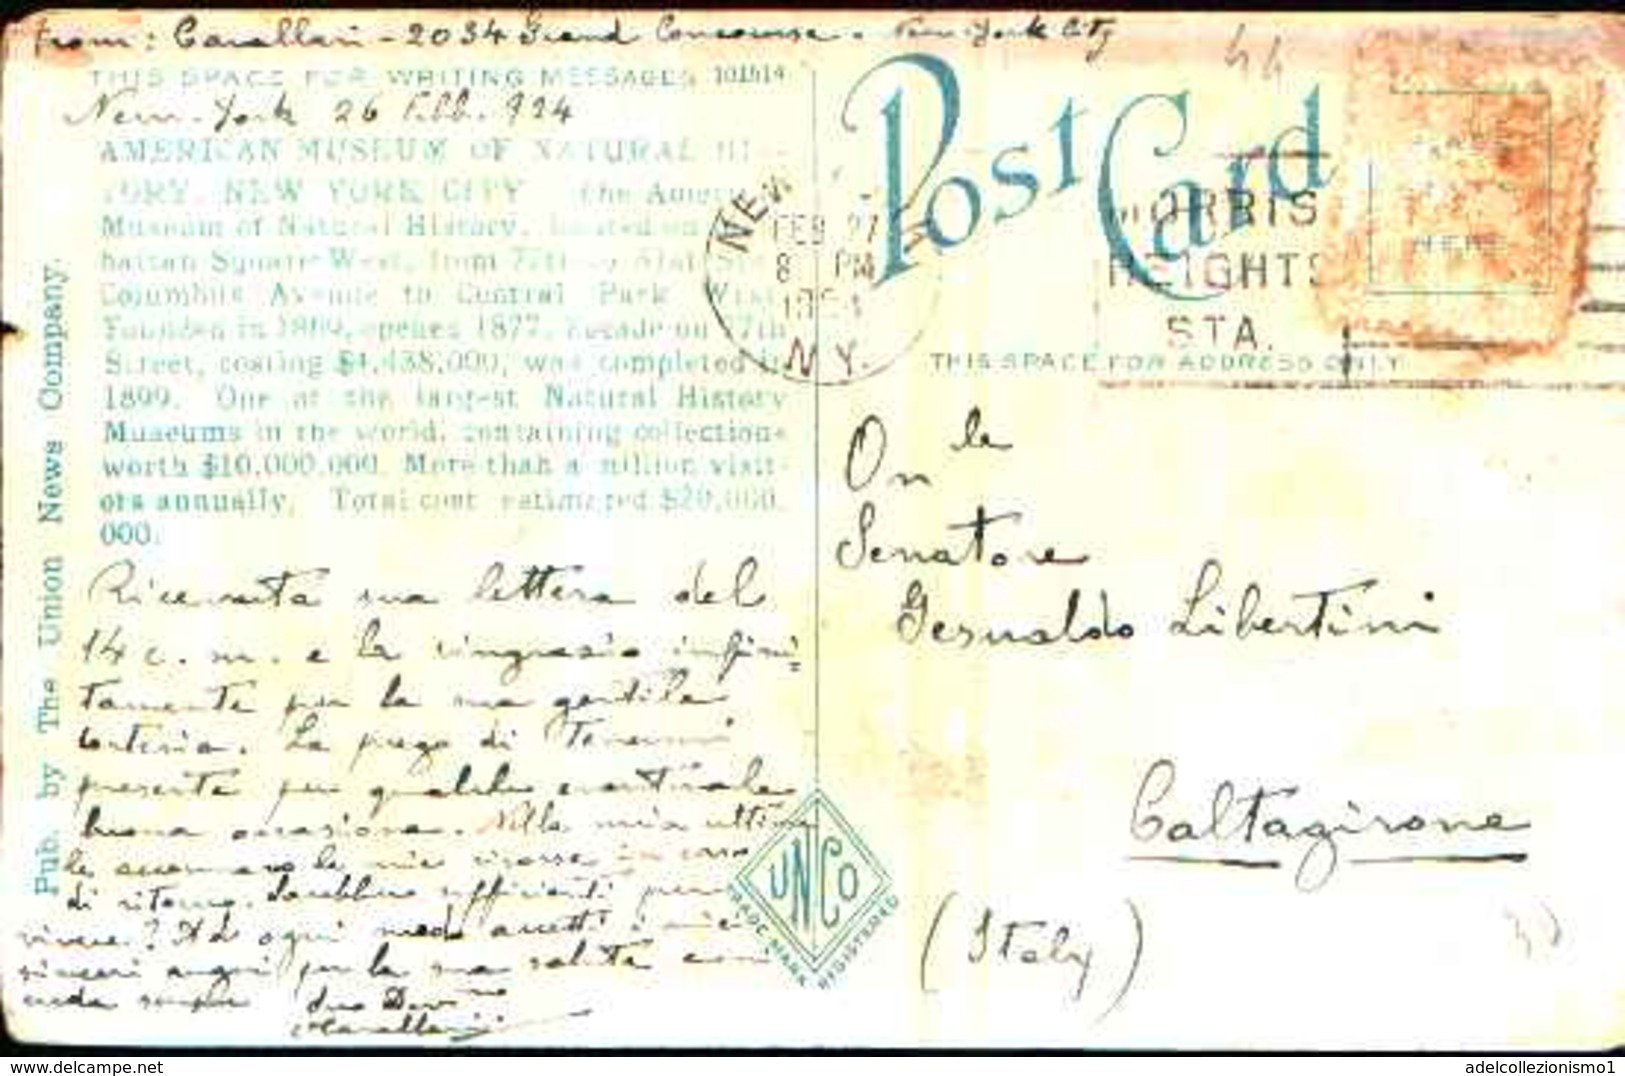 From: Cavallari - 2034 Grand Concourse. New-York City
44
THIS SPACE FOR WRITING MESSAGES 101514
New-York 26 Febb. 924
AMERICAN MUSEUM OF NATURAL HIS-
TORY, NEW YORK CITY the American
Museum of Natural History, located on
hattan Square West, from 77th to 81st Sts.
Columbus Avenue to Central Park West
Founded in 1869, opened 1877. Facade on 77th
Street, costing $4,438,000, was completed in
1899. One of the largest Natural History
Museums in the world, containing collections
worth $10,000,000. More than a million visit-
ors annually. Total cost estimated $20,000,
000.
Ricevuta sua lettera del
14 c. m. e la ringrazio infini=
tamente per la sua gentile
cortesia. La prego di tenermi
presente per qualche eventuale
buona occasione. Nella mia ultima
le accennavo le mie risorse in caso
di ritorno. Sarebbero sufficienti per
vivere? Ad ogni modo accetti i miei
sinceri auguri per la sua salute e mi
creda sempre suo Dev.mo
Cavallari
Pub. by The Union News Company.
Post Card
NEW
FEB 27
8 PM
1924
N.Y.
MORRIS
HEIGHTS
STA.
PLACE
STAMP
HERE
THIS SPACE FOR ADDRESS ONLY
On.le
Senatore
Gesualdo Libertini
Caltagirone
(Italy)
UNCO
TRADE MARK REGISTERED
delcampe.net
adelcollezionismo1